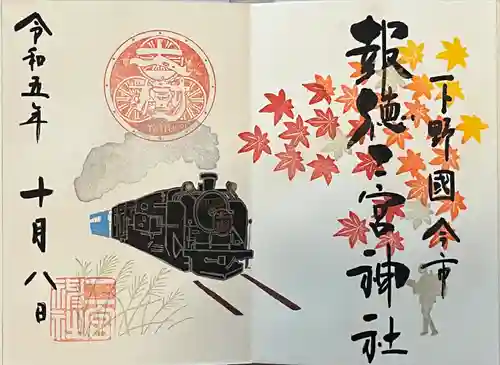 下野國今市
報徳二宮神社
令和五年
十月八日